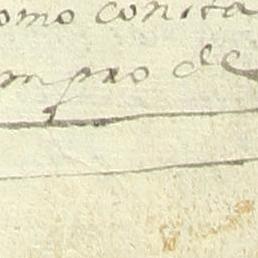 omo consta
mpro de